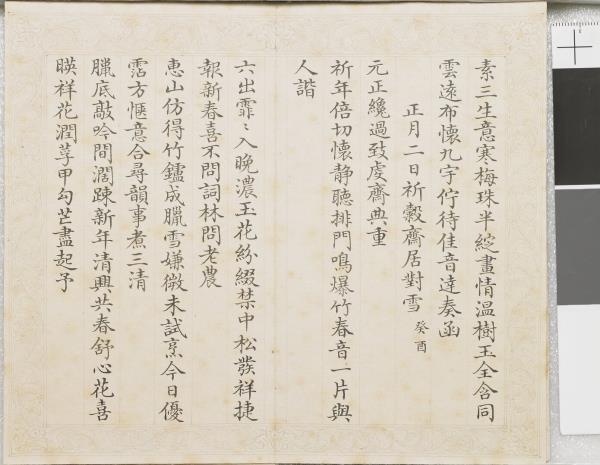 素三生意寒梅珠半綻畫情温樹玉全含同
雲遠布懷九宇佇待佳音達奏函
正月二日祈穀齋居對雪 癸酉
元正纔過致虔齋典重
祈年倍切懷静聽排門鳴爆竹春音一片與
人諧
六出霏〻入晚濃玉花紛綴禁中松發祥捷
報新春喜不問詞林問老農
惠山仿得竹鑪成臘雪嫌微未試烹今日優
霑方愜意合尋韻事煮三清
臘底敲吟間濶踈新年清興共春舒心花喜
暎祥花潤莩甲勾芒盡起予